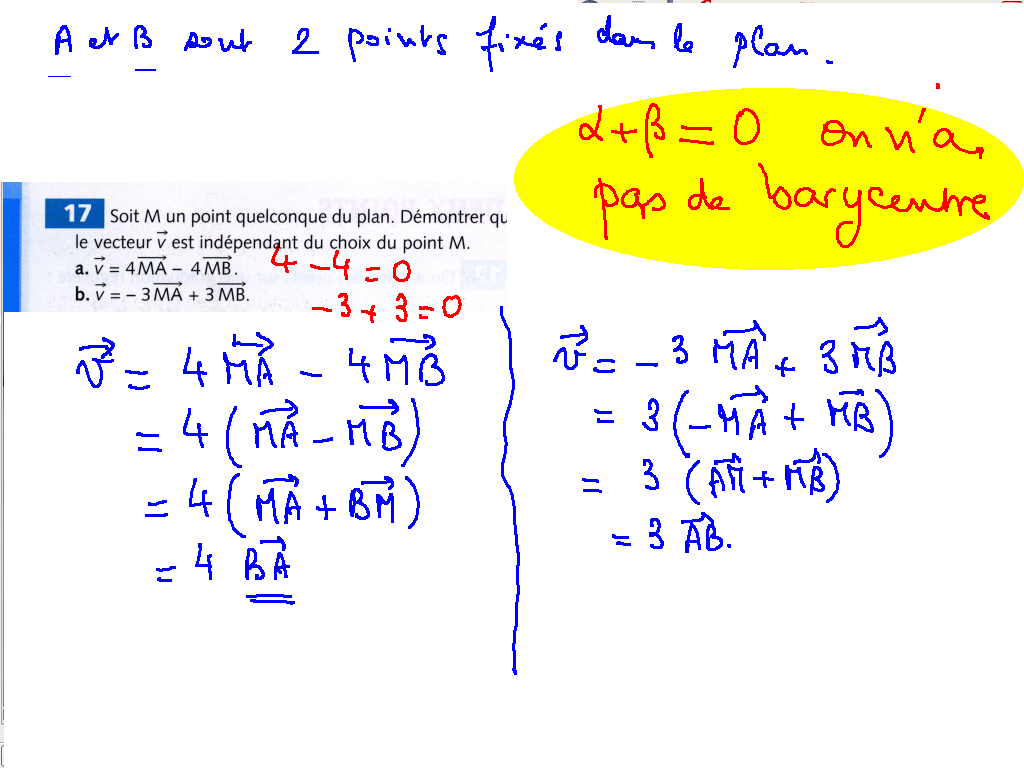 A et B sont 2 points fixés dans le plan.
α + β = 0 on n'a
pas de barycentre
17 Soit M un point quelconque du plan. Démontrer qu
le vecteur v⃗ est indépendant du choix du point M.
a. v⃗ = 4MA⃗ – 4MB⃗.
4 – 4 = 0
b. v⃗ = – 3MA⃗ + 3MB⃗.
– 3 + 3 = 0
v⃗ = 4 MA⃗ – 4 MB⃗
= 4 (MA⃗ – MB⃗)
= 4 (MA⃗ + BM⃗)
= 4 BA⃗
v⃗ = – 3 MA⃗ + 3 MB⃗
= 3 (–MA⃗ + MB⃗)
= 3 (AM⃗ + MB⃗)
= 3 AB⃗.